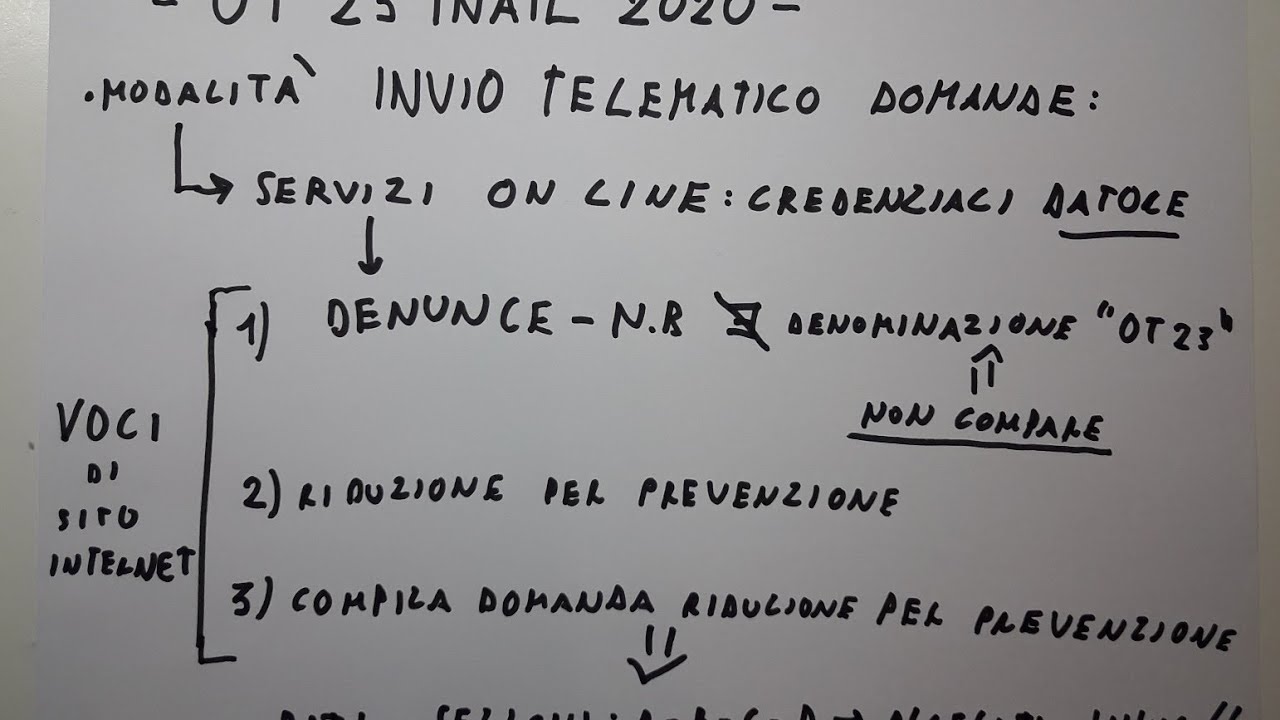 - OT 23 INAIL 2020 -
. MODALITÀ INVIO TELEMATICO DOMANDE:
SERVIZI ON LINE: CREDENZIALI DATOLE
1) DENUNCE - N.B DENOMINAZIONE "OT23"
NON COMPARE
VOCI
DI
SITO
INTERNET
2) RIDUZIONE PER PREVENZIONE
3) COMPILA DOMANDA RIDUZIONE PER PREVENZIONE